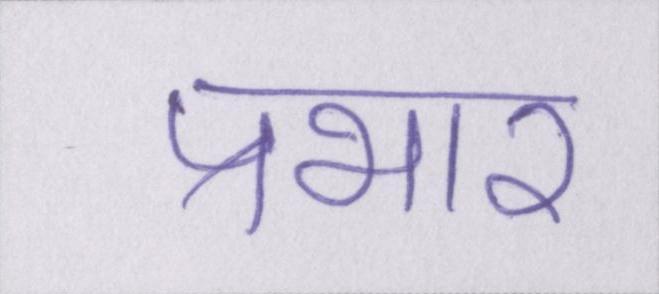 प्रभार